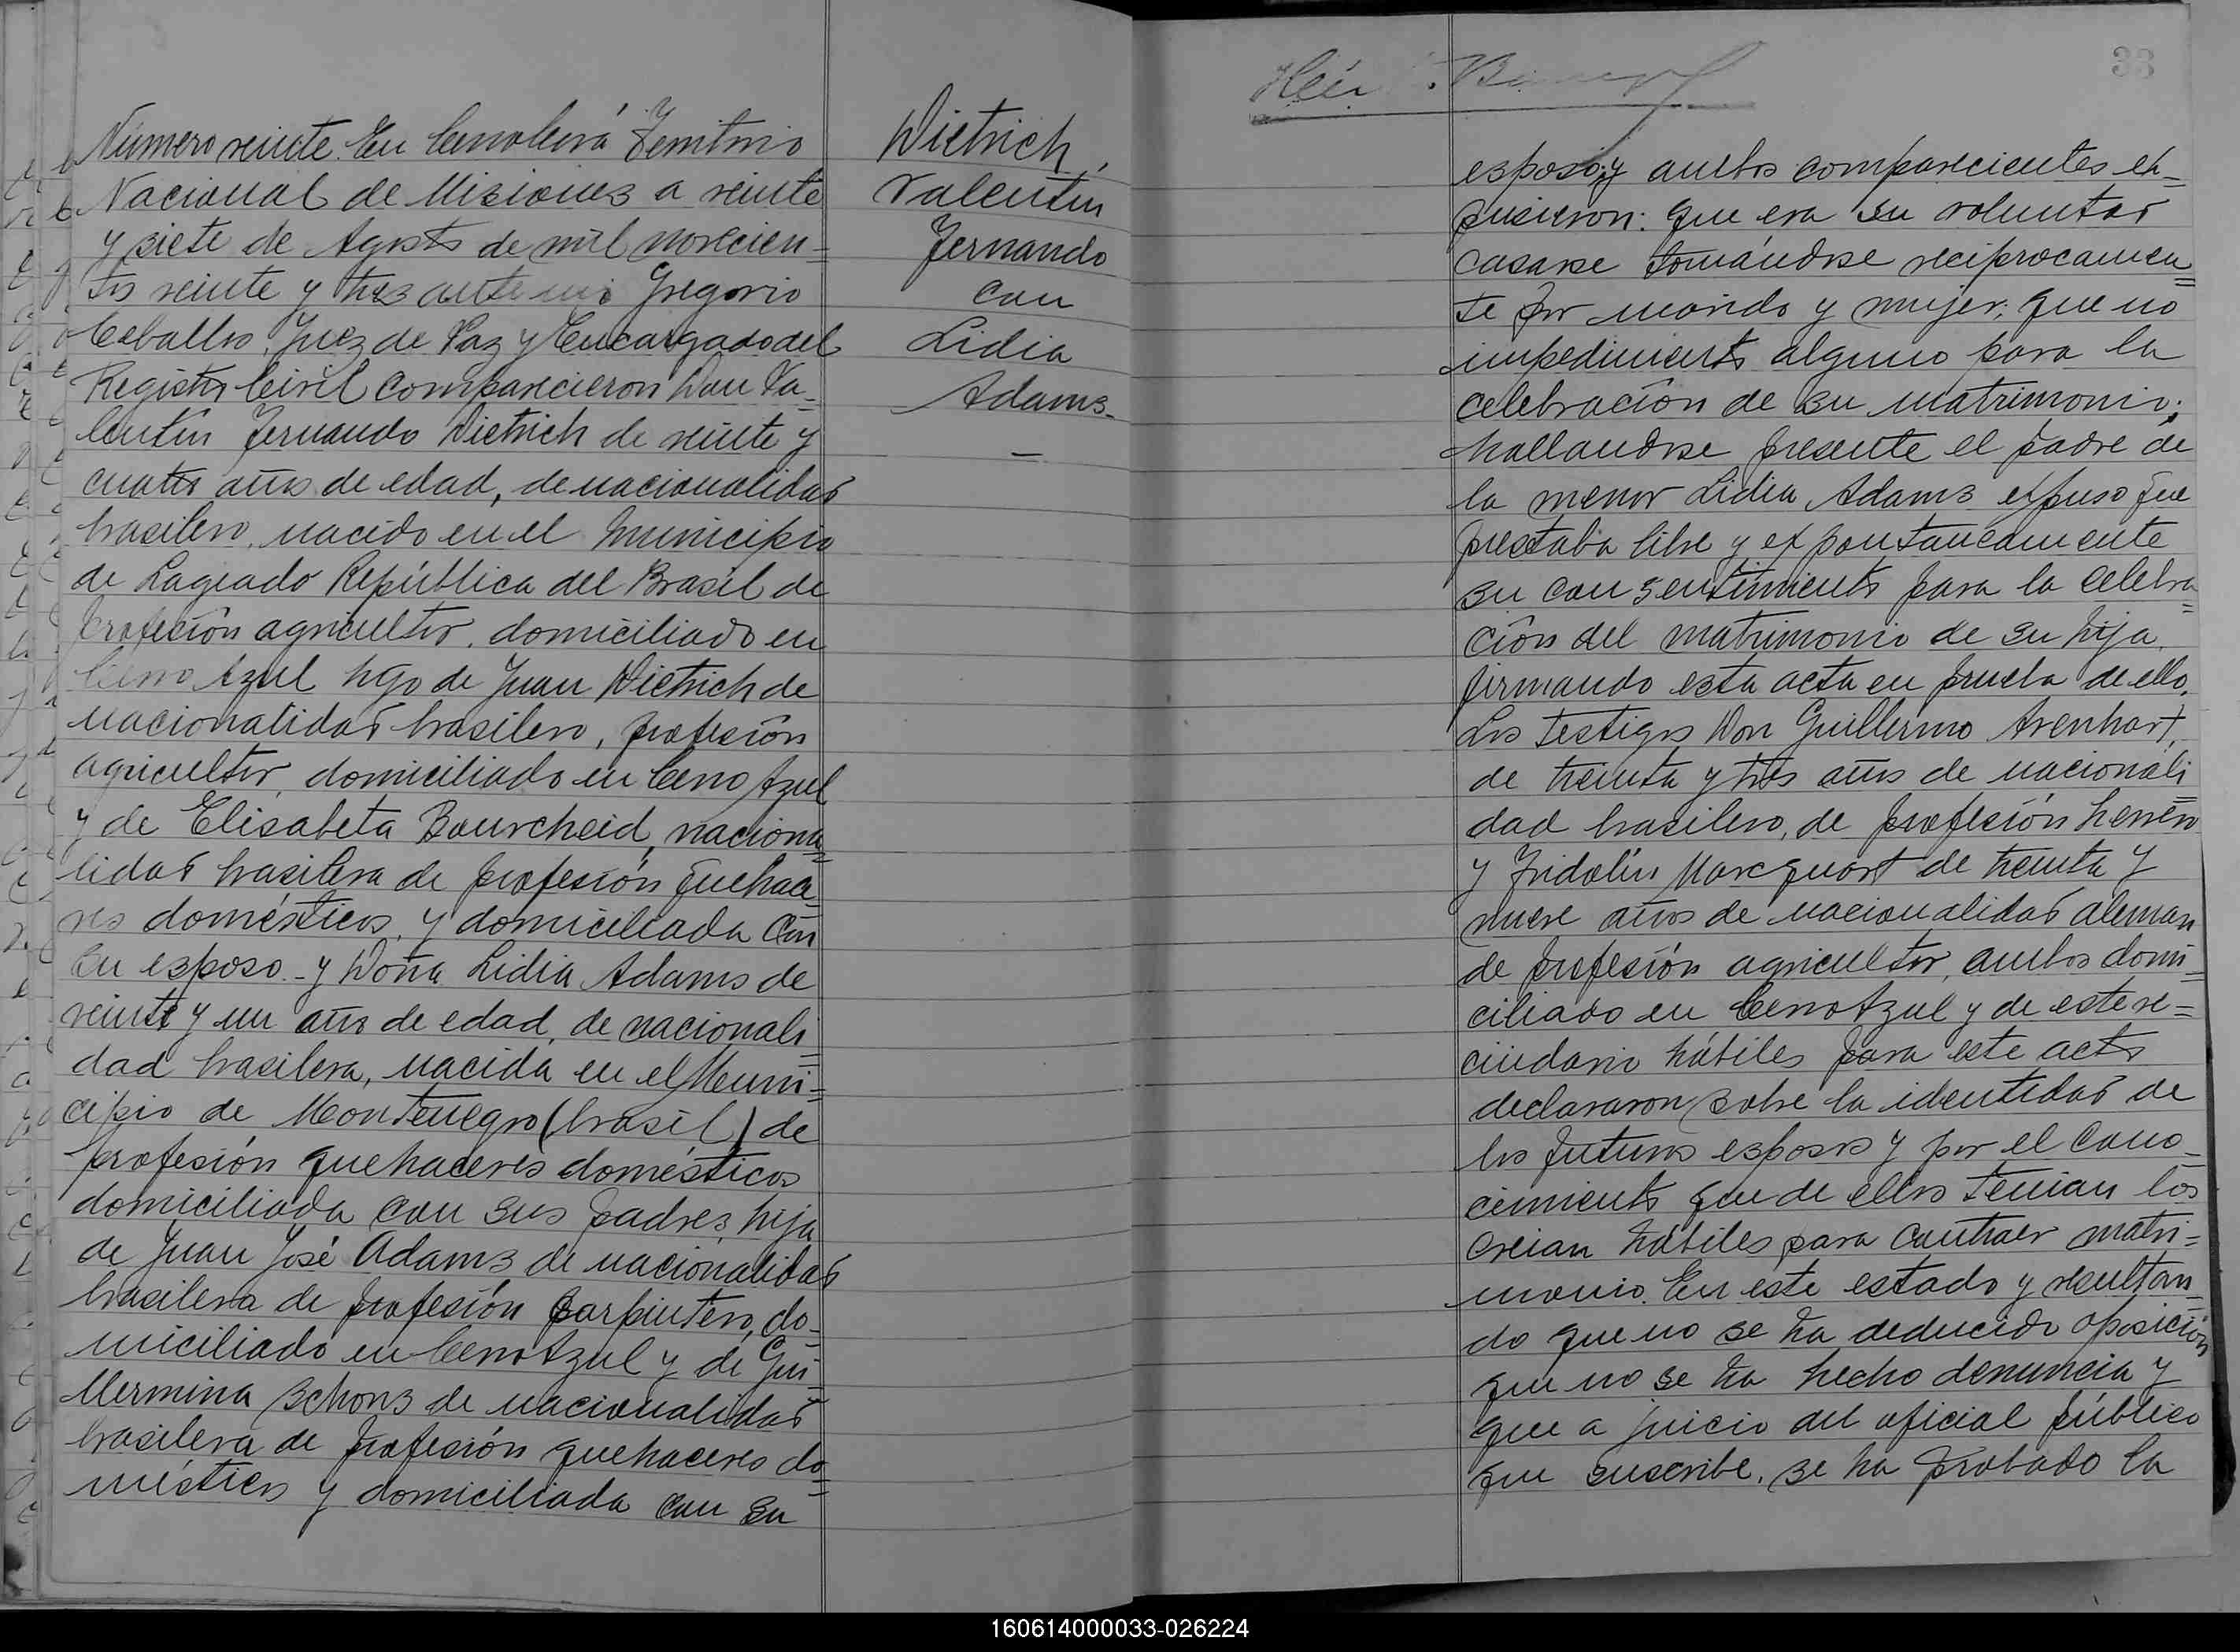 Número veinte. En Cerro Corá Territorio
Nacional de Misiones a veinte
y siete de Agosto de mil novecien=
tos veinte y tres ante mi Gregorio
Ceballos, Juez de Paz y Encargado del
Registro Civil comparecieron Don Va=
lentín Fernando Dietrich de veinte y
cuatro años de edad, de nacionalidad
brasilero, nacido en el Municipio
de Lageado República del Brasil de
profesión agricultor, domiciliado en
Cerro Azul hijo de Juan Dietrich de
nacionalidad brasilero, profesión
agricultor, domiciliado en Cerro Azul
y de Elisabeta Bourcheid, naciona=
lidad brasilera de profesión quehace=
res domésticos, y domiciliada con
su esposo - y Doña Lidia Adams de
veinte y un años de edad, de nacionali=
dad brasilera, nacida en el Muni=
cipio de Montenegro (brasil) de
profesión quehaceres domésticos
domiciliada con sus padres, hija
de Juan José Adams de nacionalidad
brasilera de profesión carpintero, do=
miciliado en Cerro Azul y de Gui=
llermina Schons de nacionalidad
brasilera de profesión quehaceres do=
mésticos y domiciliada con su
Dietrich,
Valentín
Fernando
con
Lidia
Adams.-
33
esposo; y ambos comparecientes ex=
pusieron: que era su voluntad
casarse tomándose reciprocamen=
te por marido y mujer; que no
impedimento alguno para la
celebración de su matrimonio;
hallandose presente el padre de
la menor Lidia Adams expuso que
prestaba libre y expontaneamente
su consentimiento para la celebra=
ción del matrimonio de su hija,
firmando esta acta en prueba de ello.
Los testigos Don Guillermo Arenhart,
de treinta y tres años de nacionali=
dad brasilero, de profesión herrero
y Fridolín Marcquart de treinta y
nueve años de nacionalidad aleman
de profesión agricultor, ambos domi=
ciliado en Cerro Azul y de este ve=
cindario hábiles para este acto
declararon sobre la identidad de
los futuros esposos y por el cono=
cimiento que de ellos tenian los
creian hábiles para contraer matri=
monio. En este estado y resultan=
do que no se ha deducido oposición
que no se ha hecho denuncia y
que a juicio del oficial público
que suscribe, se ha probado la
160614000033-026224